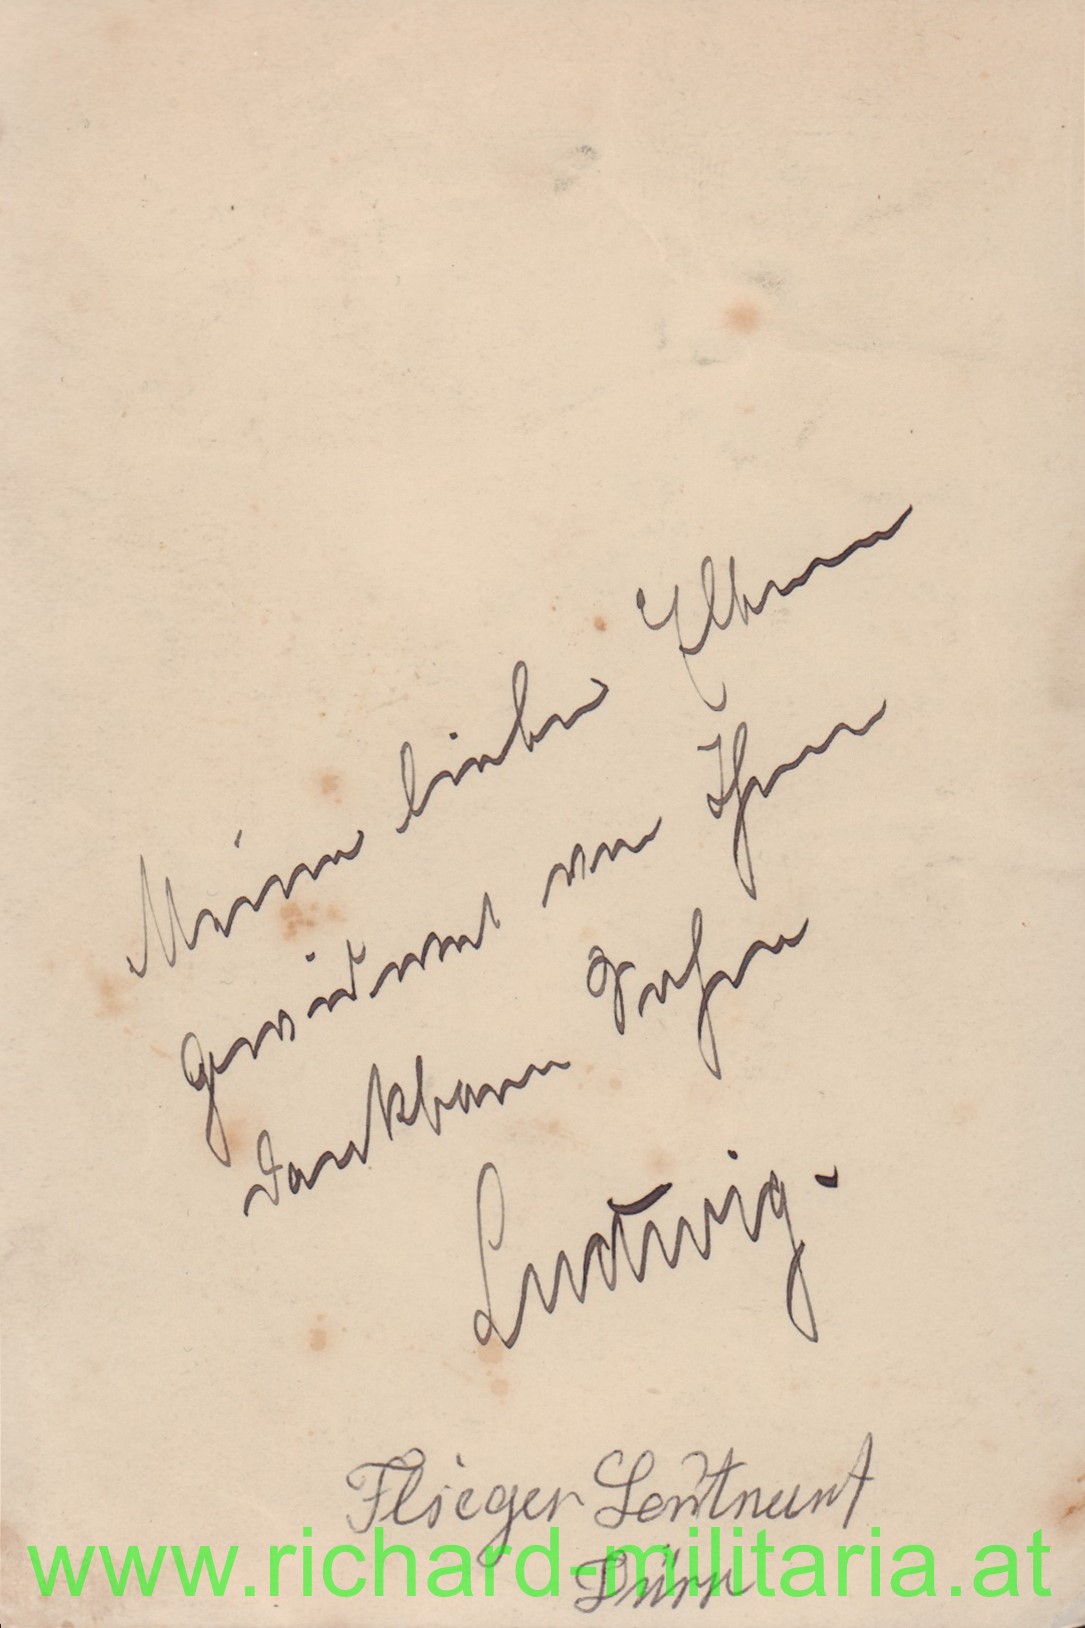 Meinen lieben Eltern
gewidmet von Ihrem
dankbaren Sohne
Ludwig.
Flieger Leutnant
Dürr
www.richard-militaria.at